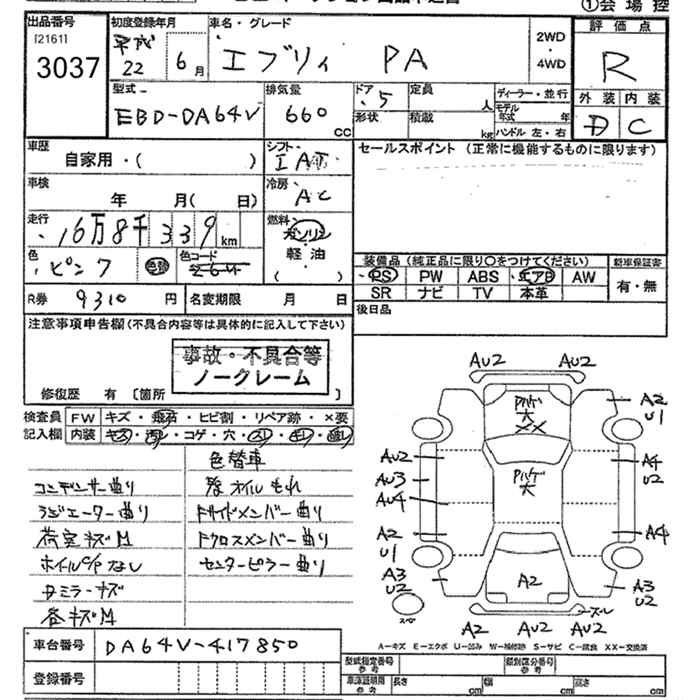 ①会場控
出品番号
[2161]
3037
初度登録年月
平成
22 6月
車名・グレード
エブリィ PA
2WD
・
4WD
評価点
R
外装 内装
D C
型式
EBD-DA64V
排気量
660 cc
ドア
5
形状
定員
人
積載
kg
ディーラー・並行
モデル年式 年
ハンドル 左・右
車歴
自家用・( )
シフト
IAT
セールスポイント (正常に機能するものに限ります)
車検
年 月( 日)
冷房
AC
走行
16万8千339km
燃料
ガソリン
軽油
( )
色
ピンク
色替
色コード
Z6W
装備品 (純正品に限り○をつけてください)
PS PW ABS エアB AW
SR ナビ TV 本革
新車保証書
有・無
R券 9310円
名変期限 月 日
後日品
注意事項申告欄(不具合内容等は具体的に記入して下さい)
事故・不具合等
ノークレーム
修復歴 有 [箇所 ]
検査員
記入欄
FW キズ・飛石・ヒビ割・リペア跡・×要
内装 キズ・汚レ・コゲ・穴・スレ・キレ
色替車
コンデンサー曲り
発オイルもれ
ラジエーター曲り
Fサイドメンバー曲り
荷室キズM
Fクロスメンバー曲り
ホイルC/Pなし
センターピラー曲り
各キズM
AU2 AU2
A2
U1
AU2
AU3
AU4
A2
U1
A3
U2
A4
U2
A4
A3
U2
A2
A2 AU2 AU2
スレ
スペア
A-キズ E-エクボ U-凹み W-補修跡 S-サビ C-腐食 XX-交換済
車台番号 DA64V-417850
登録番号
型式指定番号
参考
類別区分番号
参考
車庫証明
参考
長さ cm
幅 cm
高さ cm